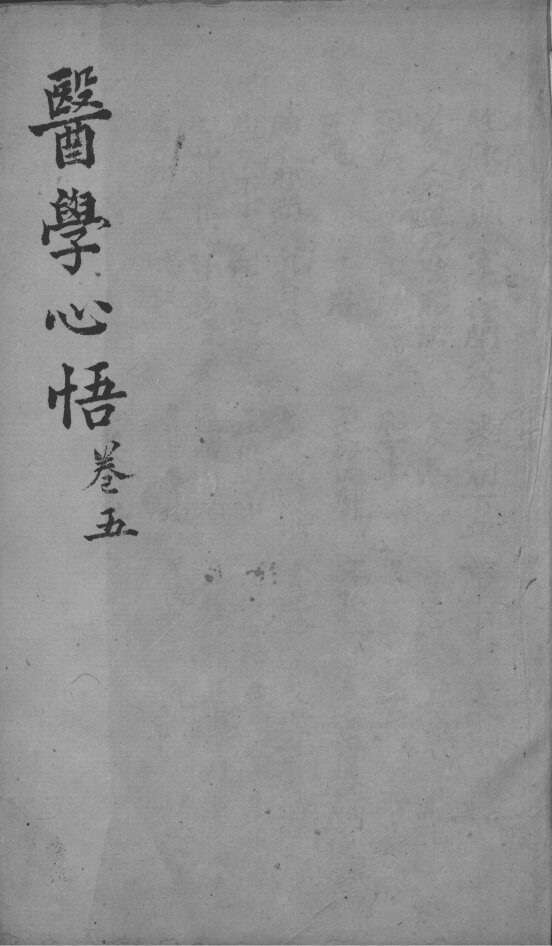 醫學心悟卷五